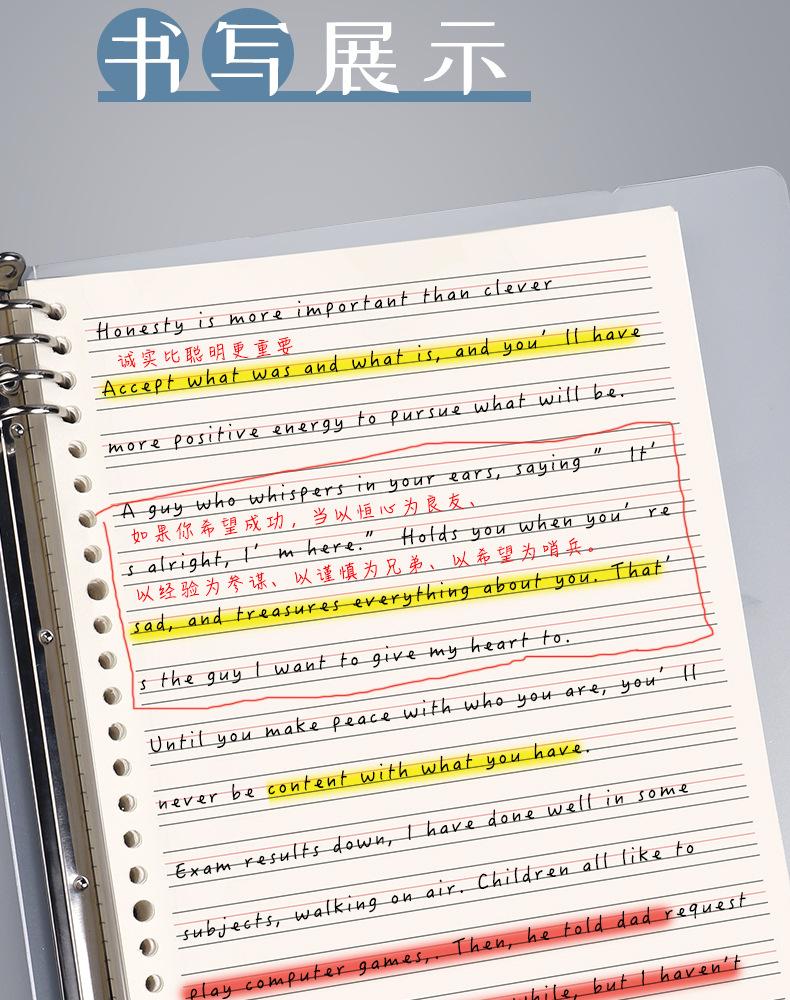 书写展示
Honesty is more important than clever
诚实比聪明更重要
Accept what was and what is, and you' ll have
more positive energy to pursue what will be.
A guy who whispers in your ears, saying " It'
如果你希望成功，当以恒心为良友、
s alright, I' m here." Holds you when you' re
以经验为参谋、以谨慎为兄弟、以希望为哨兵。
sad, and treasures everything about you. That'
s the guy I want to give my heart to.
Until you make peace with who you are, you' ll
never be content with what you have.
Exam results down, I have done well in some
subjects, walking on air. Children all like to
play computer games,. Then, he told dad request
while, but I haven't